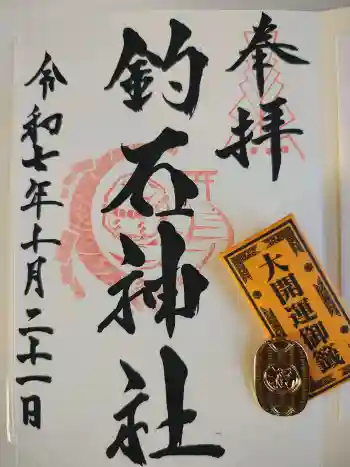 奉拝
釣石神社
令和七年十月二十一日
大開運御籤